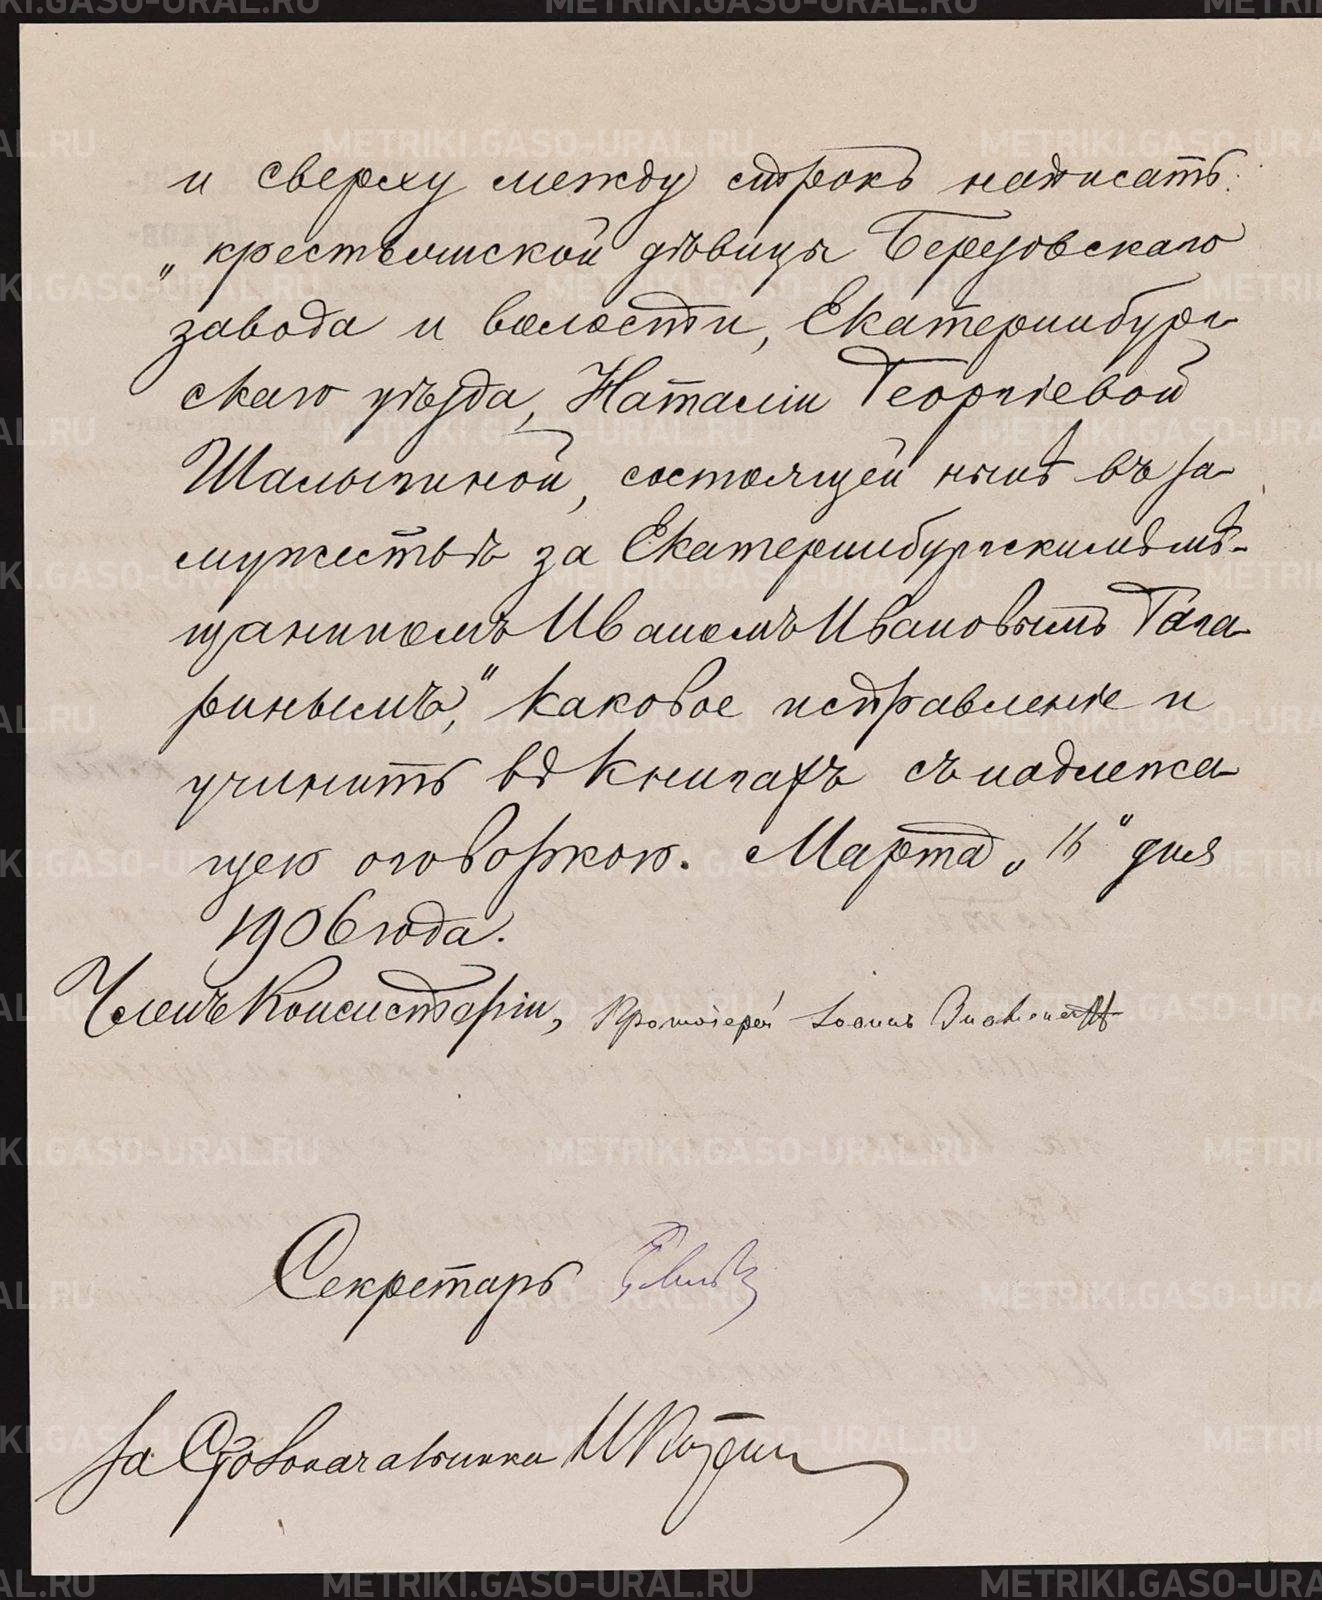 и сверху между строкъ написать:
„крестьянской дѣвицы Березовскаго
завода и волости, Екатеринбург-
скаго уѣзда, Наталіи Георгіевой
Шалыгиной, состоящей нынѣ въ за-
мужествѣ за Екатеринбургскимъ мѣ-
щаниномъ Иваномъ Ивановымъ Гага-
ринымъ," каковое исправленіе и
учинить въ книгахъ съ надлежа-
щею оговоркою. Марта „16" дня
1906 года.
Членъ Консисторіи, Протоіерей Іоаннъ
Секретарь
За Столоначальника И